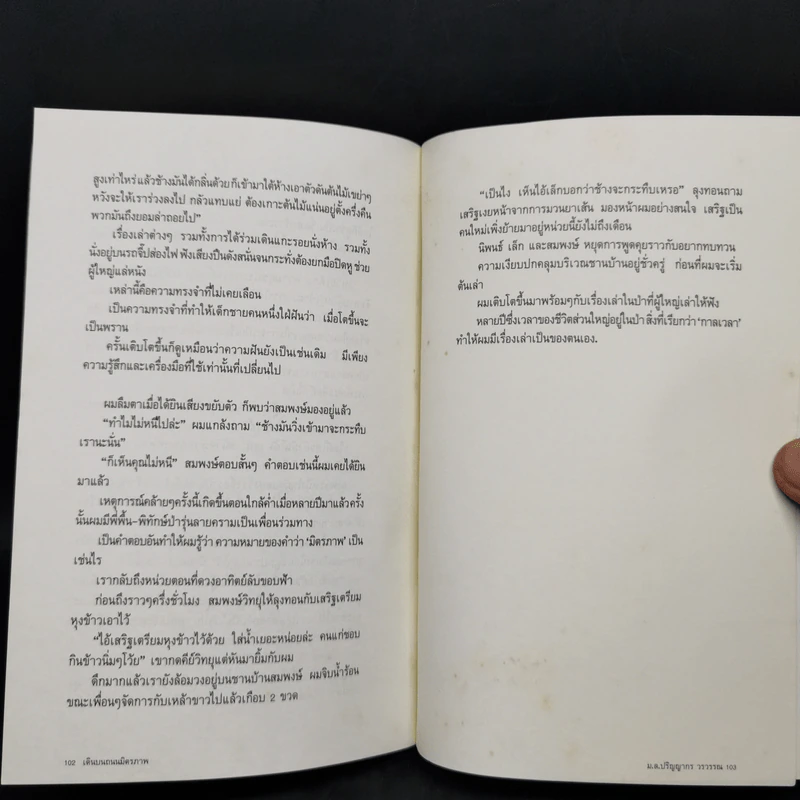 สูงเท่าไหร่ แล้วช้างมันได้กลิ่นด้วย ก็เข้ามาใต้ห้างเอาตัวดันต้นไม้เขย่าๆ
หวังจะให้เราร่วงลงไป กลัวแทบแย่ ต้องเกาะต้นไม้แน่นอยู่ตั้งครึ่งคืน
พวกมันถึงยอมล่าถอยไป”
เรื่องเล่าต่างๆ รวมทั้งการได้ร่วมเดินแกะรอยนั่งห้าง รวมทั้ง
นั่งอยู่บนรถจี๊ปส่องไฟ ฟังเสียงปืนดังสนั่นจนกระทั่งต้องยกมือปิดหู ช่วย
ผู้ใหญ่แล่หนัง
เหล่านี้คือความทรงจำที่ไม่เคยเลือน
เป็นความทรงจำที่ทำให้เด็กชายคนหนึ่งใฝ่ฝันว่า เมื่อโตขึ้นจะ
เป็นพราน
ครั้นเติบโตขึ้นก็ดูเหมือนว่าความฝันยังเป็นเช่นเดิม มีเพียง
ความรู้สึกและเครื่องมือที่ใช้เท่านั้นที่เปลี่ยนไป
ผมลืมตาเมื่อได้ยินเสียงขยับตัว ก็พบว่าสมพงษ์มองอยู่แล้ว
“ทำไมไม่หนีไปล่ะ” ผมแกล้งถาม “ช้างมันวิ่งเข้ามาจะกระทืบ
เรานะนั่น”
“ก็เห็นคุณไม่หนี” สมพงษ์ตอบสั้นๆ คำตอบเช่นนี้ผมเคยได้ยิน
มาแล้ว
เหตุการณ์คล้ายๆครั้งนี้เกิดขึ้นตอนใกล้ค่ำเมื่อหลายปีมาแล้วครั้ง
นั้นผมมีพี่พื้น-พิทักษ์ป่ารุ่นลายครามเป็นเพื่อนร่วมทาง
เป็นคำตอบอันทำให้ผมรู้ว่า ความหมายของคำว่า ‘มิตรภาพ’ เป็น
เช่นไร
เรากลับถึงหน่วยตอนที่ดวงอาทิตย์ลับขอบฟ้า
ก่อนถึงราวๆครึ่งชั่วโมง สมพงษ์วิทยุให้ลุงทอนกับเสริฐเตรียม
หุงข้าวเอาไว้
“ไอ้เสริฐเตรียมหุงข้าวไว้ด้วย ใส่น้ำเยอะหน่อยล่ะ คนแก่ชอบ
กินข้าวนิ่มๆโว้ย” เขากดคีย์วิทยุแต่หันมายิ้มกับผม
ดึกมากแล้วเรายังล้อมวงอยู่บนชานบ้านสมพงษ์ ผมจิบน้ำร้อน
ขณะเพื่อนๆจัดการกับเหล้าขาวไปแล้วเกือบ 2 ขวด
102 เดินบนถนนมิตรภาพ
“เป็นไง เห็นไอ้เล็กบอกว่าช้างจะกระทืบเหรอ” ลุงทอนถาม
เสริฐเงยหน้าจากการมวนยาเส้น มองหน้าผมอย่างสนใจ เสริฐเป็น
คนใหม่เพิ่งย้ายมาอยู่หน่วยนี้ยังไม่ถึงเดือน
นิพนธ์ เล็ก และสมพงษ์ หยุดการพูดคุยราวกับอยากทบทวน
ความเงียบปกคลุมบริเวณชานบ้านอยู่ชั่วครู่ ก่อนที่ผมจะเริ่ม
ต้นเล่า
ผมเติบโตขึ้นมาพร้อมๆกับเรื่องเล่าในป่าที่ผู้ใหญ่เล่าให้ฟัง
หลายปีซึ่งเวลาของชีวิตส่วนใหญ่อยู่ในป่า สิ่งที่เรียกว่า ‘กาลเวลา’
ทำให้ผมมีเรื่องเล่าเป็นของตนเอง.
ม.ล.ปริญญากร วรวรรณ 103